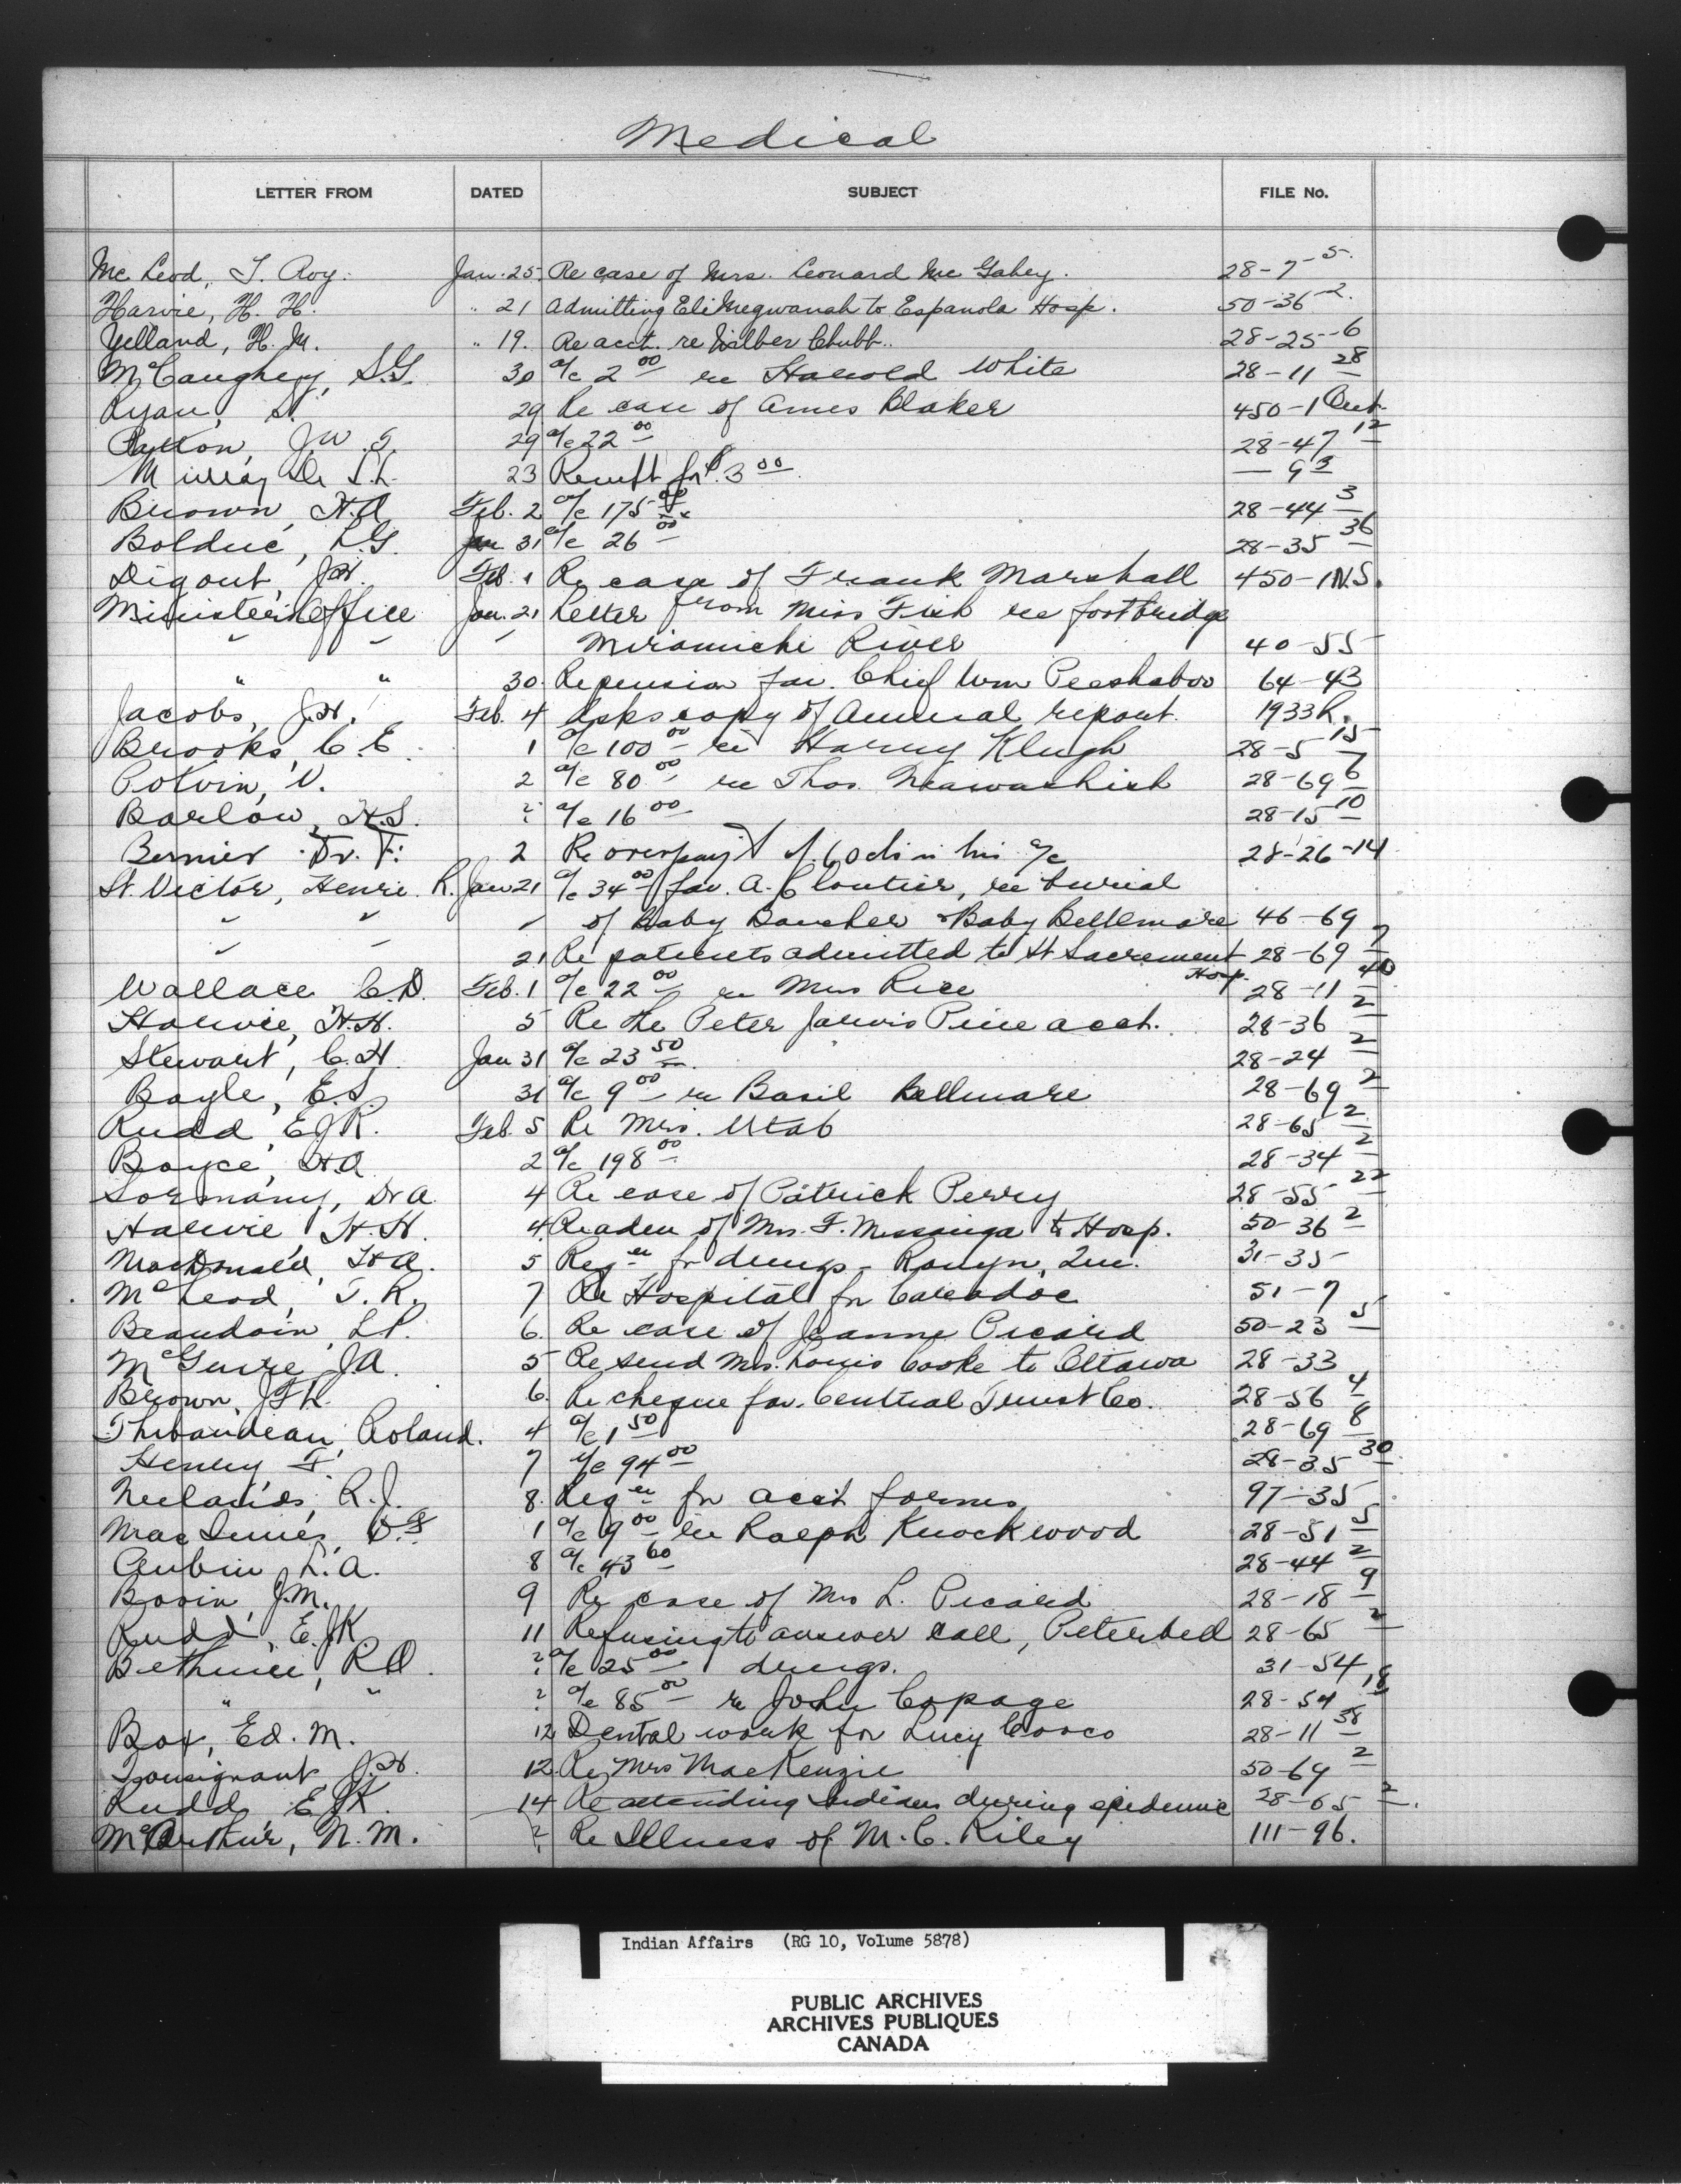 Medical
LETTER FROM DATED SUBJECT FILE No.
Mc Leod, T. Roy. Jan. 25. Re case of Mrs. Leonard Mc Gahey. 28-7-5.
Harvie, H. H. " 21 Admitting Eli Megwanah to Espanola Hosp. 50-36-2.
Yelland, H. M. " 19. Re acct. re Wilber Chubb.. 28-25-6
McCaughey, S.G. 30 a/c 2 00 re Harold White 28-11 28
Ryan, 29 Re case of Amos Blaker 450-1 Ont.
Patton, J.W.S. 29 a/c 22 00 28-47 12
Murray Dr S.L. 23 Receipt for $3 00 — 9 3
Brown, H.A Feb. 2 a/c 175 00 28-44 3
Bolduc, L.G. Jan 31 a/c 26 00 28-35 36
Digout, J.H. Feb. 1 Re case of Frank Marshall 450-1 N.S.
Minister's Office Jan. 21 Letter from Miss Fish re footbridge
" " " Miramichi River 40-55
" " 30. Re pension for Chief Wm Peeshaboo 64-43
Jacobs, J.H. Feb. 4 Asks copy of Annual report. 1933 R.
Brooks, C. E. 1 a/c 100 00 re Harvey Klugh 28-5 15
Potvin, V. 2 a/c 80 00 re Thos. Neawashish 28-69 7 6
Barlow, H.S. ? a/c 16 00 28-15 10
Bernier Dr. F. 2 Re overpay't of 60 cts in his a/c 28-26-14
St. Victor, Henri R. Jan 21 a/c 34 00 fav. A. Cloutier, re burial
" " " of Baby Boucher & Baby Bellemare 46-69
" " 21 Re patients admitted to St Sacrement Hosp. 28-69 7
Wallace C.D. Feb. 1 a/c 22 00 re Mrs Rice 28-11 40
Harvie, H.H. 5 Re the Peter Jarvis Pine acct. 28-36 2
Stewart, C.H Jan 31 a/c 23 50 28-24 2
Bayle, E.S 31 a/c 9 00 re Basil Bellmare 28-69 2
Rudd, E.J.K. Feb. 5 Re Mrs. Utab 28-65 2
Boyce, H.A 2 a/c 198 00 28-34 2
Sormany, Dr A. 4 Re case of Patrick Perry 28-55 22
Harvie H.H. 4. Re adm of Mrs. F. Missaiga to Hosp. 50-36 2
MacDonald, H.A. 5 Reqn for drugs - Rouyn, Que. 31-35
McLeod, T.R. 7 Re Hospital for Caradoc 51-7
Beaudoin, L.P. 6. Re case of Jeanne Picard 50-23 5
McGuire, J.A. 5 Re send Mrs. Louis Cooke to Ottawa 28-33
Brown, J.F.L. 6. Re cheque fav. Central Trust Co. 28-56 4
Thibaudeau, Roland. 4 a/c 1 50 28-69 8
Henry F. 7 a/c 94 00 28-35 30
Neelands, R.J. 8. Reqn for acct forms 97-35
MacInnis, D.F 1 a/c 9 00 re Ralph Knockwood 28-51 5
Aubin, L.A. 8 a/c 43 60 28-44 2
Bovin, J.M. 9 Re case of Mrs L. Picard 28-18 9
Rudd, E.J.K 11 Refusing to answer call, Peterbell 28-65 2
Bethune, R.O. ? a/c 25 00 drugs. 31-54
" " ? a/c 85 00 re John Copage 28-54 18
Box, Ed. M. 12 Dental work for Lucy Cosco 28-11 38
Tousignant, J.H. 12. Re Mrs MacKenzie 50-69 2
Rudd, E.J.K. 14 Re attending Indians during epidemic 28-65 2
McArthur, N.M. ? Re Illness of M.C. Riley 111-96.
Indian Affairs (RG 10, Volume 5878)
PUBLIC ARCHIVES
ARCHIVES PUBLIQUES
CANADA